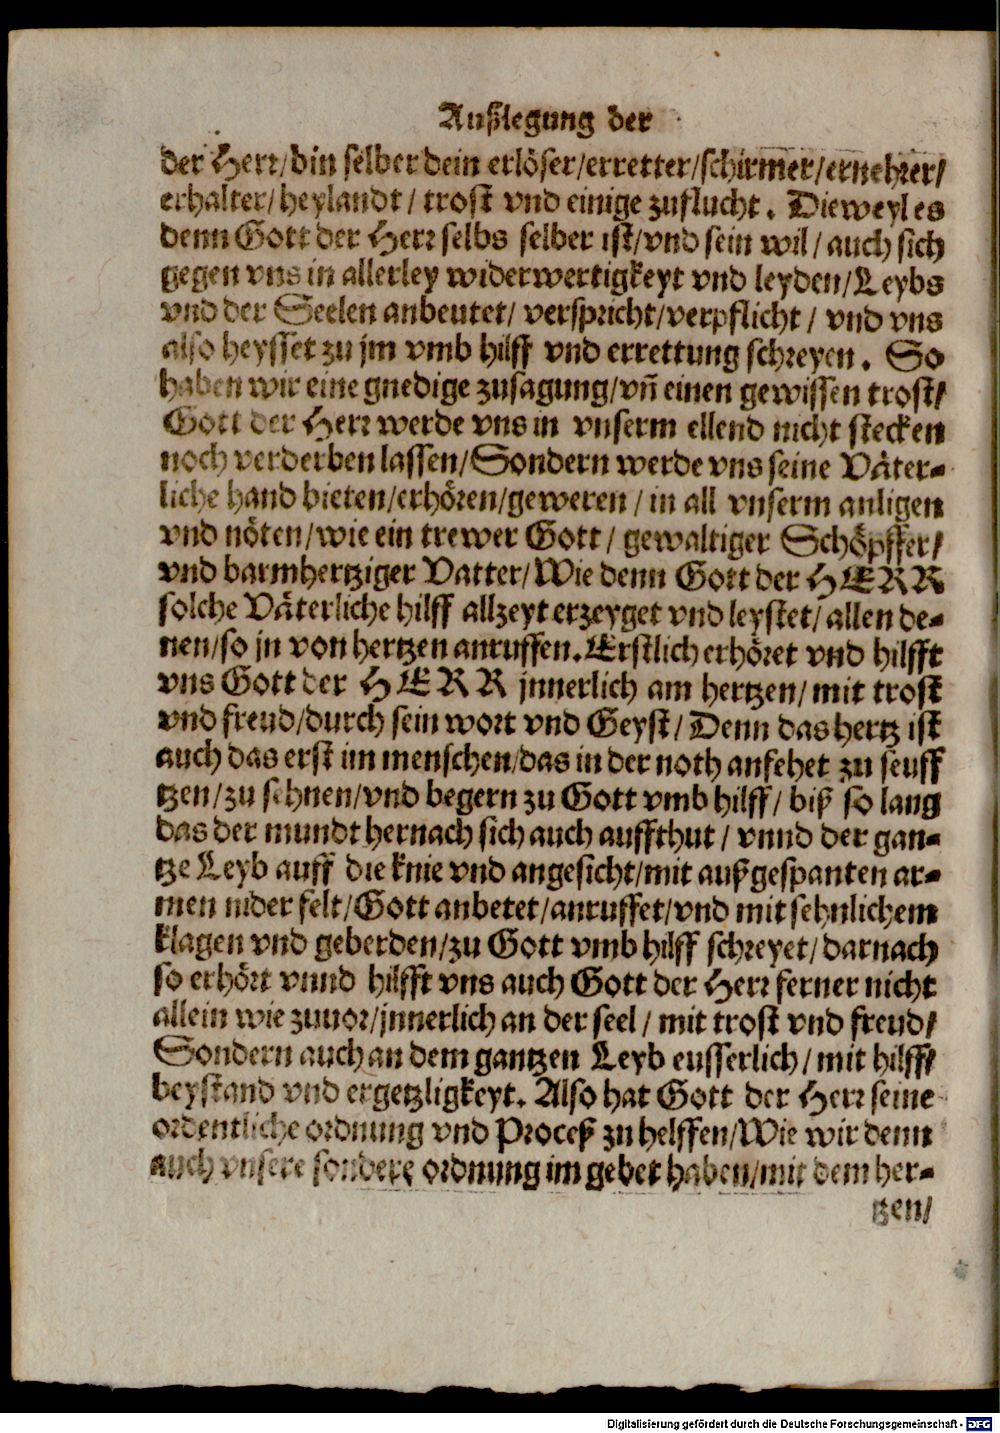 Außlegung der
der Herr/bin selber dein erlöser/erretter/schirmer/ernehrer/
erhalter/heylandt/ trost vnd einige zuflucht. Dieweyl es
denn Gott der Herr selbs selber ist/vnd sein wil/ auch sich
gegen vns in allerley widerwertigkeyt vnd leyden/Leybs
vnd der Seelen anbeutet/ verspricht/verpflicht/ vnd vns
also heysset zu jm vmb hilff vnd errettung schreyen. So
haben wir eine gnedige zusagung/vñ einen gewissen trost/
Gott der Herr werde vns in vnserm ellend nicht stecken
noch verderben lassen/Sondern werde vns seine Väter-
liche hand bieten/erhören/geweren/ in all vnserm anligen
vnd nöten/wie ein trewer Gott/ gewaltiger Schöpffer/
vnd barmhertziger Vatter/Wie denn Gott der HERR
solche Väterliche hilff allzeyt erzeyget vnd leystet/ allen de-
nen/so jn von hertzen anruffen. Erstlich erhöret vnd hilfft
vns Gott der HERR jnnerlich am hertzen/ mit trost
vnd freud/durch sein wort vnd Geyst/ Denn das hertz ist
auch das erst im menschen/das in der noth anfehet zu seuff
tzen/zu sehnen/vnd begern zu Gott vmb hilff/ biß so lang
das der mundt hernach sich auch auffthut/ vnnd der gan-
tze Leyb auff die knie vnd angesicht/mit außgespanten ar-
men nider felt/Gott anbetet/anruffet/vnd mit sehnlichem
klagen vnd geberden/zu Gott vmb hilff schreyet/ darnach
so erhört vnnd hilfft vns auch Gott der Herr ferner nicht
allein wie zuuor/jnnerlich an der seel/ mit trost vnd freud/
Sondern auch an dem gantzen Leyb eusserlich/ mit hilff/
beystand vnd ergetzligkeyt. Also hat Gott der Herr seine
ordentliche ordnung vnd Proceß zu helffen/Wie wir denn
auch vnsere sondere ordnung im gebet haben/mit dem her-
tzen/
Digitalisierung gefördert durch die Deutsche Forschungsgemeinschaft - DFG